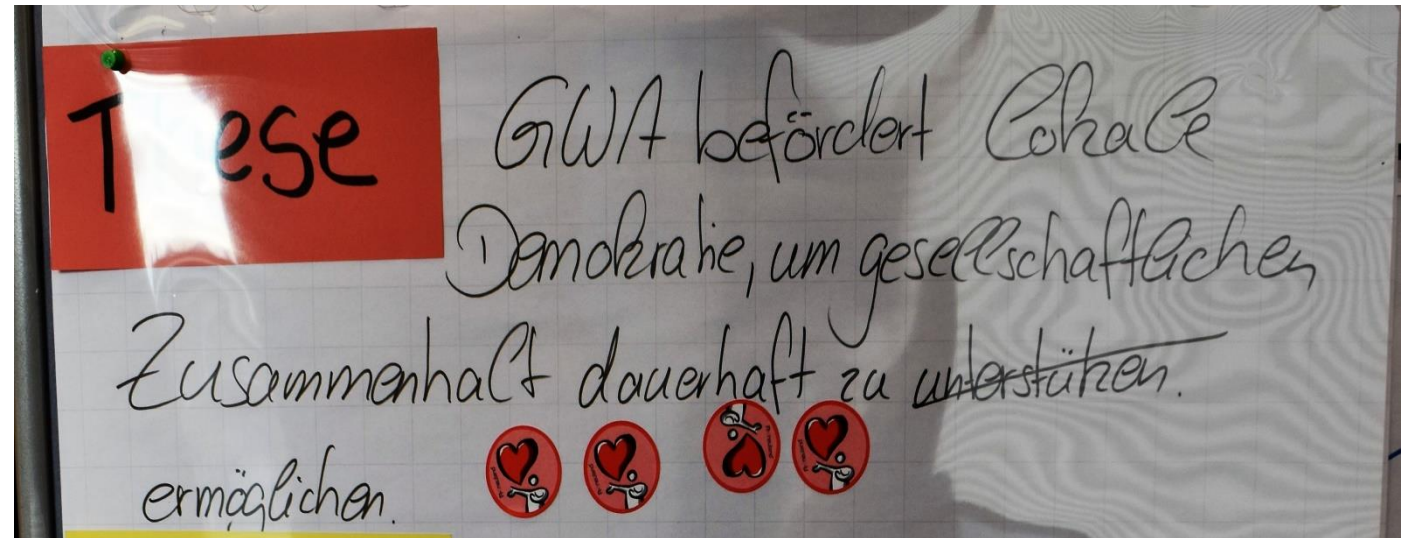 These
GWA befördert lokale
Demokratie, um gesellschaftlichen
Zusammenhalt dauerhaft zu unterstützen.
ermöglichen.